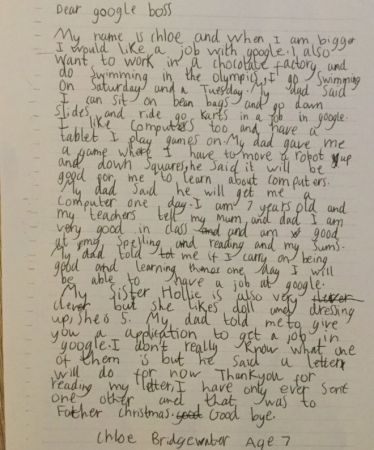 Dear google boss
My name is chloe and when I am bigger
I would like a job with google. I also
want to work in a chocolate factory and
do swimming in the olympics. I go swimming
on Saturday and a Tuesday. My dad said
I can sit on bean bags and go down
slides and ride go karts in a job in google.
I like computers too and have a
tablet I play games on. My dad gave me
a game where I have to move a robot up
and down squares, he said it will be
good for me to learn about computers.
My dad said he will get me a
computer one day. I am 7 years old and
my teachers tell my mum and dad I am
very good in class and am good
at my spelling and reading and my sums.
My dad told me if I carry on being
good and learning one day I will
be able to have a job at google.
My sister Hollie is also very
clever but she likes doll and dressing
up, she is 5. My dad told me to give
you a application to get a job in
google. I don't really know what one
of them is but he said a letter
will do for now. Thankyou for
reading my letter, I have only ever sent
one other and that was to
Father christmas. Good bye.
Chloe Bridgewater Age 7